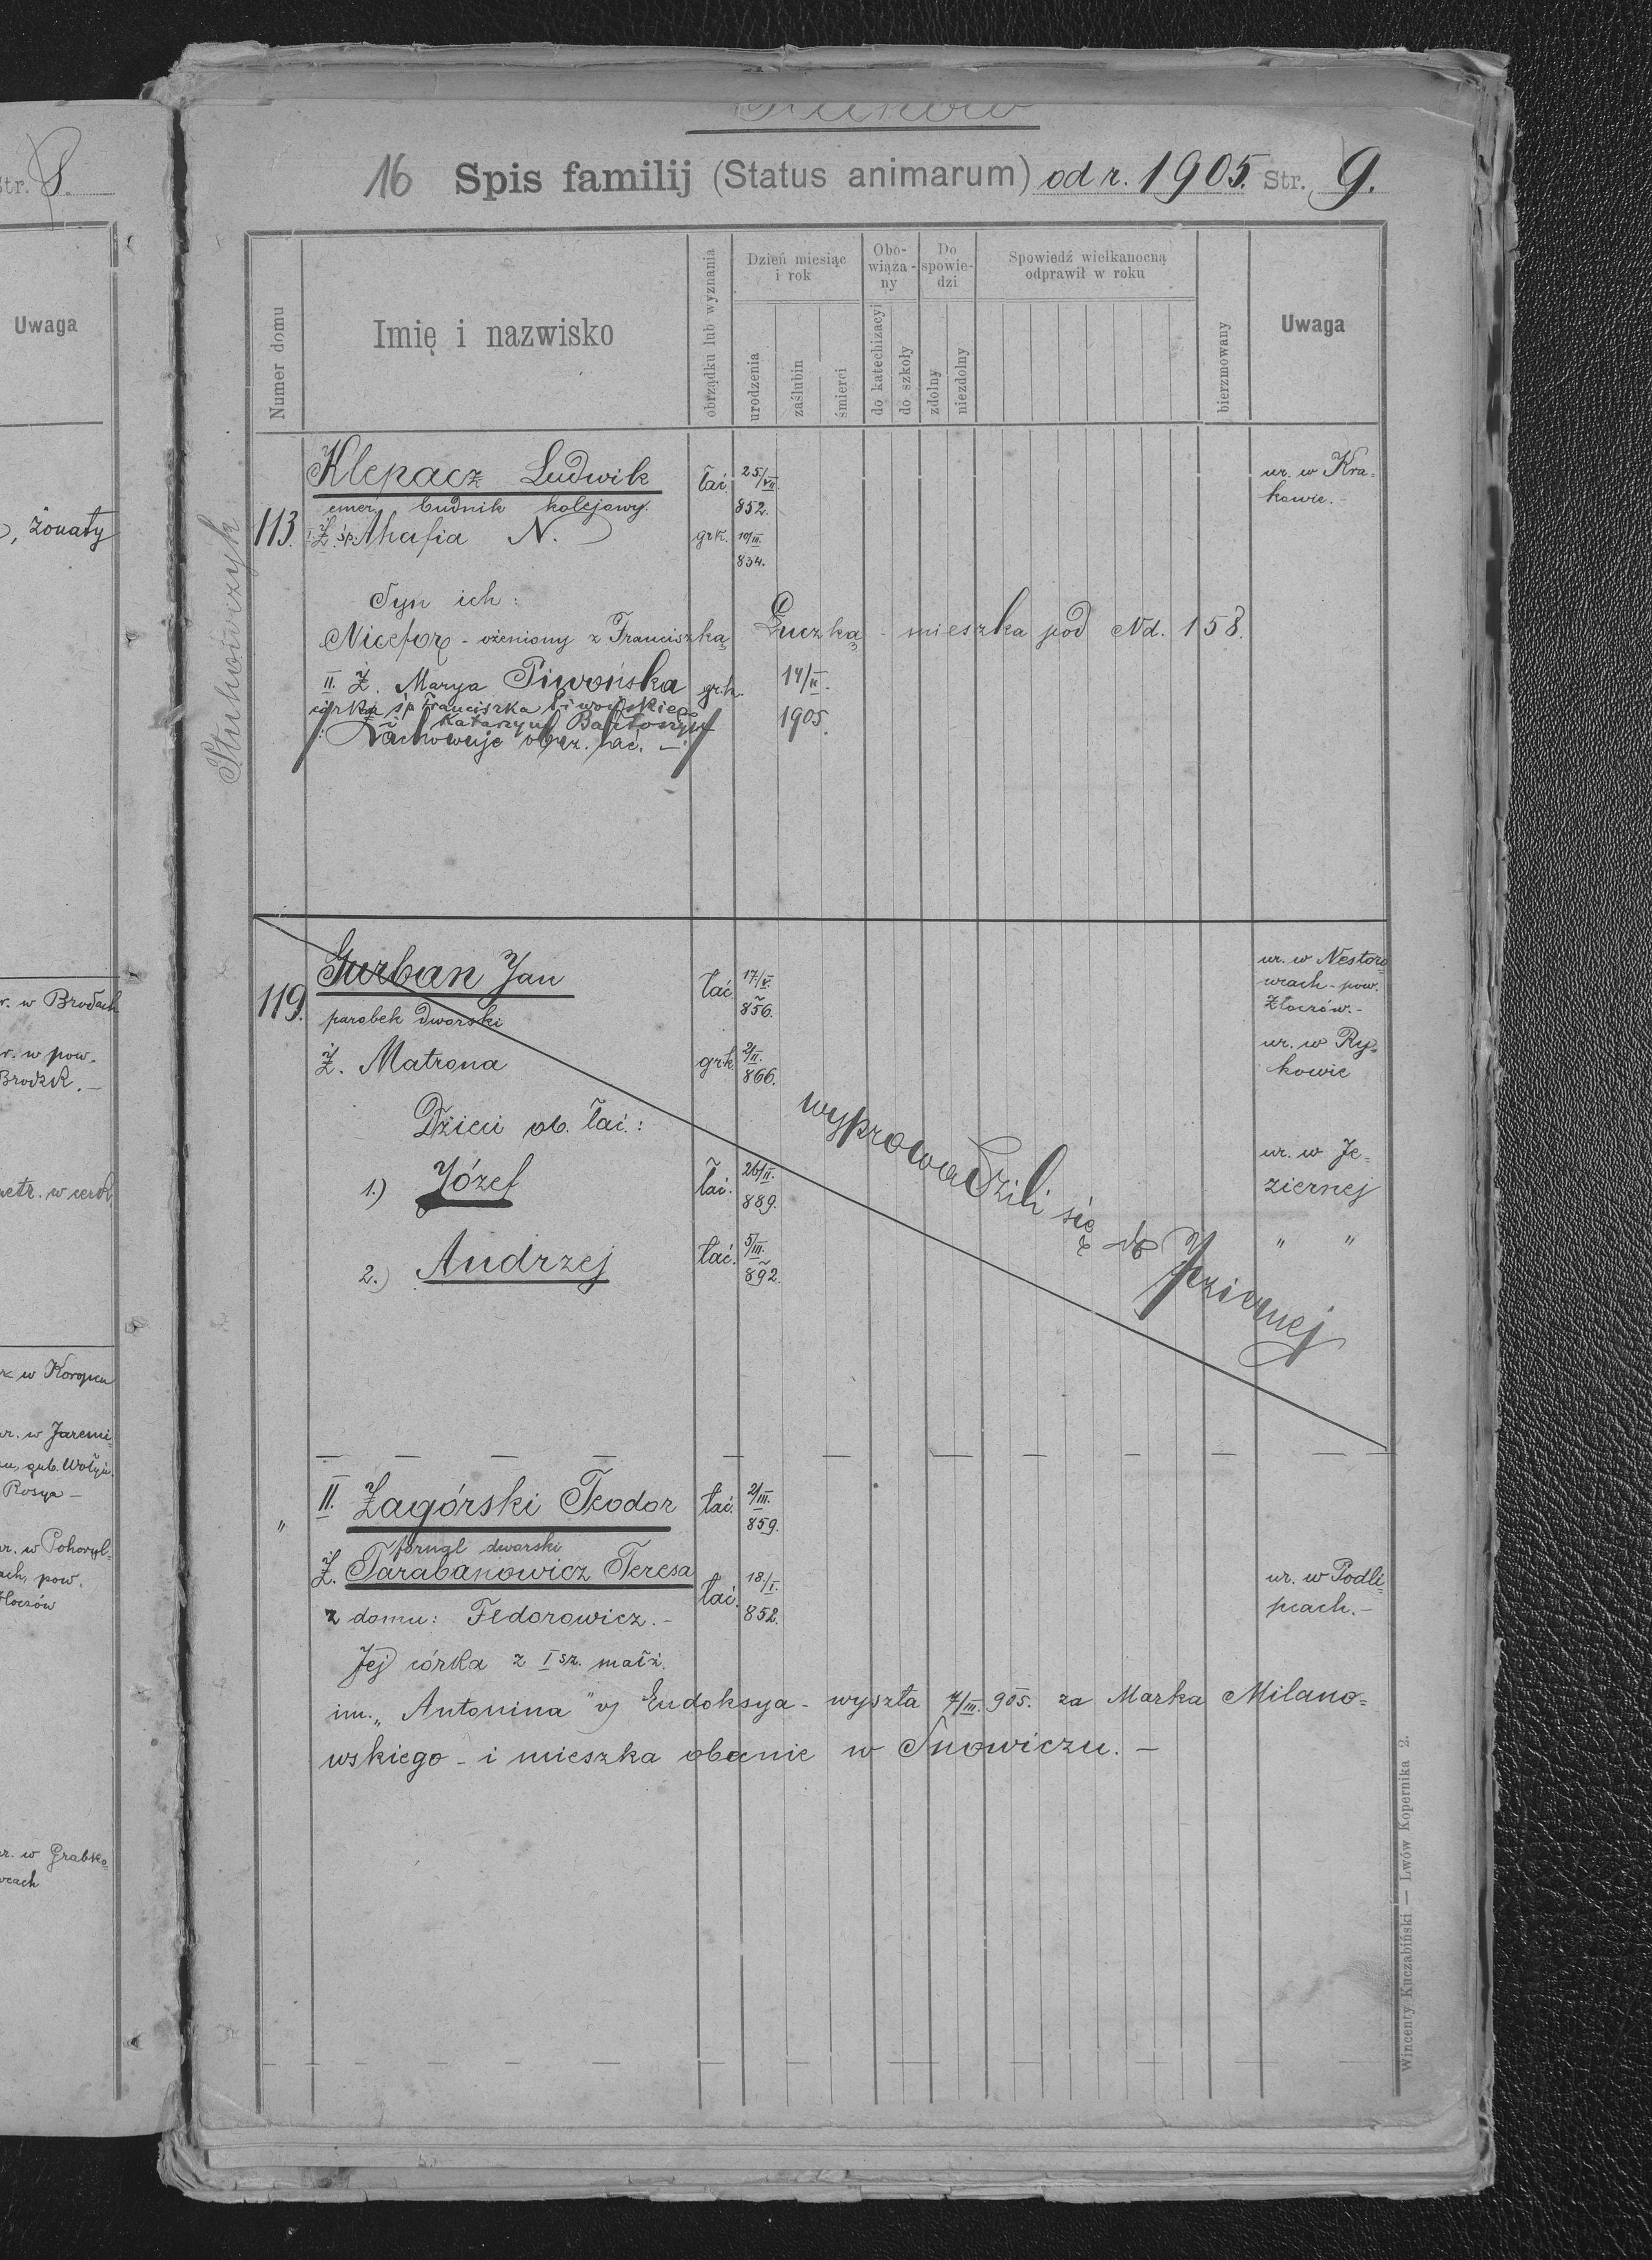 Str. 8.
Uwaga
, żonaty
r. w Brodach
r. w pow.
Brodzk. –
r. w Koropcu
ur. w Jaremi-
gub. Wołyń.
Rosya –
ur. w Pohoryl-
ach, pow.
Złoczów
ur. w Grabko-
wcach
16 Spis familij (Status animarum) od r. 1905. Str. 9.
Numer domu
Imię i nazwisko
obrządku lub wyznania
Dzień miesiąc i rok
urodzenia
zaślubin
śmierci
Obo-wiąza-ny
do katechizacyi
do szkoły
Do spowie-dzi
zdolny
niezdolny
Spowiedź wielkanocną odprawił w roku
bierzmowany
Uwaga
Klepacz Ludwik łać. 25/VII. 852. ur. w Kra=
kowie. –
emer. budnik kolejowy.
113. I Ż. śp. Ahafia N. grk. 10/III. 834.
Syn ich:
Nicefor – ożeniony z Franciszką Łuczką – mieszka pod Nd. 158.
II. Ż. Marya Piwońska grk. 14/II. 1905.
córka śp Franciszka Piwońskiego
i Katarzyny
Zachowuje obrz. łać. –
Gurban Jan łać. 17/V. 856. ur. w Nestoro=
wcach – pow.
Złoczów. –
119. parobek dworski
Ż. Matrona grk. 2/II. 866. ur. w Ry=
kowie
Dzieci ob. łać.:
1.) Józef łać. 26/II. 889. ur. w Je=
ziernej
2.) Andrzej łać. 5/III. 892. " "
wyprowadzili się do Jeziernej
" II. Zagórski Teodor łać. 2/III. 859.
fornal dworski
Ż. Tarabanowicz Teresa łać. 18./I. 852. ur. w Podli=
pcach. –
z domu: Fedorowicz. –
Jej córka z I sz. małż.
im. „Antonina" v) Eudoksya – wyszła 7/III. 905. za Marka Milano=
wskiego – i mieszka obecnie w Snowiczu. –
Wincenty Kuczabiński — Lwów Kopernika 2.